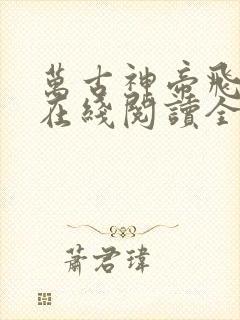 萬古神帝飛
在綫閱讀全
蕭君瑋